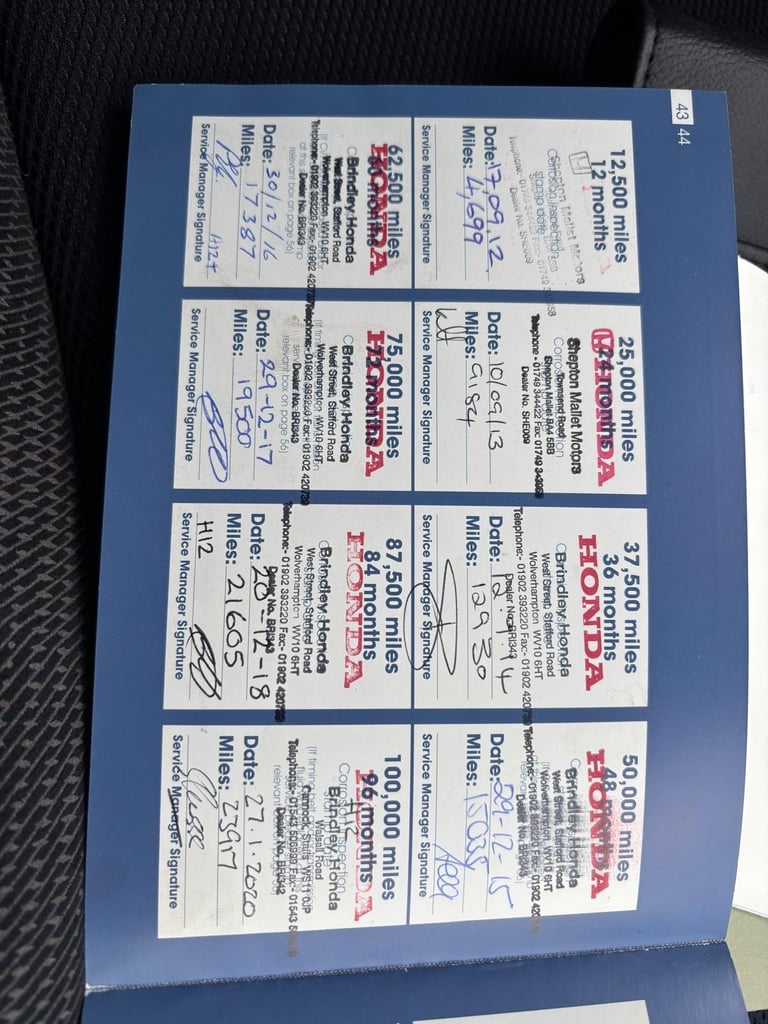 43 44
12,500 miles
12 months
Shepton Mallet Motors
Date: 17.09.12.
Miles: 4,699
Service Manager Signature
25,000 miles
HONDA
24 months
Shepton Mallet Motors
Townsend Road
Shepton Mallet BA4 5BB
Telephone - 01749 344422 Fax: 01749
Dealer No. SHE009
Date: 10/09/13
Miles:
Service Manager Signature
37,500 miles
36 months
HONDA
Brindley Honda
West Street, Stafford Road
Wolverhampton WV10 6HT
Telephone:- 01902 393220 Fax:- 01902 420739
Dealer No. BRI343
Date:
Miles: 12930
Service Manager Signature
50,000 miles
48 months
HONDA
Brindley Honda
West Street, Stafford Road
Wolverhampton WV10 6HT
Telephone:- 01902 393220 Fax:- 01902
Dealer No. BRI343
Date: 29-12-15
Miles: 15038
Service Manager Signature
62,500 miles
HONDA
Brindley Honda
West Street, Stafford Road
Wolverhampton, WV10 6HT
Telephone:- 01902 393220 Fax:- 01902 420739
Dealer No. BRI343
relevant box on page 56)
Date: 30/12/16
Miles: 17387
Service Manager Signature
H124
75,000 miles
72 months
HONDA
Brindley Honda
West Street, Stafford Road
Wolverhampton WV10 6HT
Telephone:- 01902 393220 Fax:- 01902 420739
Dealer No. BRI343
relevant box on page 56)
Date: 29-12-17
Miles: 19500
Service Manager Signature
87,500 miles
84 months
HONDA
Brindley Honda
West Street, Stafford Road
Wolverhampton WV10 6HT
Telephone:- 01902 393220 Fax:- 01902 420739
Dealer No. BRI343
Date: 20-12-18
Miles: 21605
Service Manager Signature
H12
100,000 miles
96 months
HONDA
Brindley Honda
Walsall Road
Cannock, Staffs WS11 0JP
Telephone:- 01543
Date: 27.1.2020
Miles: 23917
Service Manager Signature